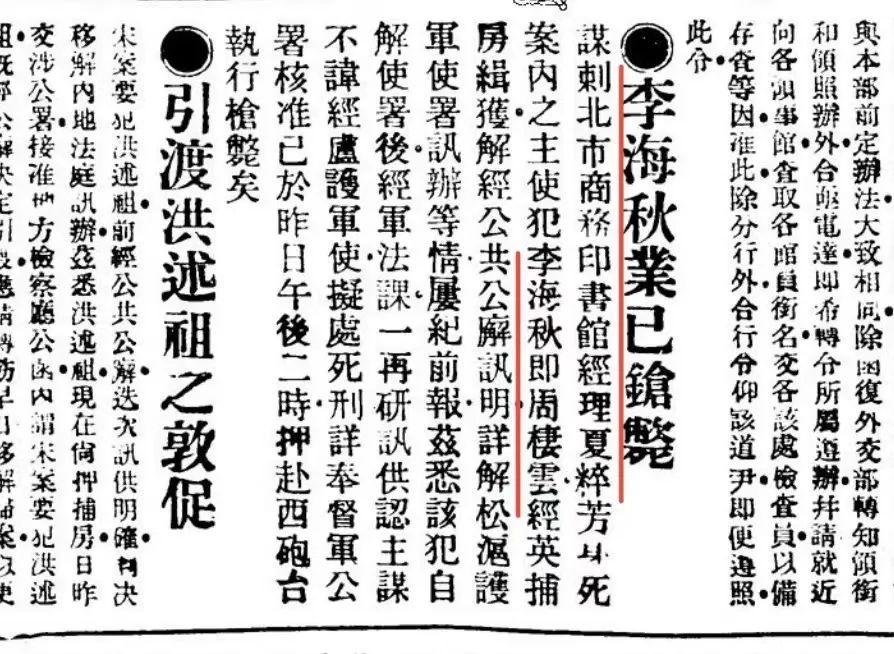 與本部前定辦法大致相同除函復外交部轉知領銜
和領照辦外合亟電達即希轉令所屬遵辦并請就近
向各領事館查取各館員銜名交各該處檢查員以備
存查等因准此除分行外合行令仰該道尹即便遵照
此令
●李海秋業已鎗斃
謀刺北市商務印書館經理夏粹芳斗死
案內之主使犯李海秋即周棲雲經英捕
房緝獲解經公共公廨訊明詳解松滬護
軍使署訊辦等情屢紀前報茲悉該犯自
解使署後經軍法課一再研訊供認主謀
不諱經盧護軍使擬處死刑詳奉督軍公
署核准已於昨日午後二時押赴西砲台
執行槍斃矣
●引渡洪述祖之敦促
宋案要犯洪述祖前經公共公廨迭次訊供明確判決
移解內地法庭訊辦茲悉洪述祖現在尙押捕房日昨
交涉公署接准地方檢察廳公函內謂宋案要犯洪述
祖既經公廨決定引渡應請轉飭早日移解歸案以便